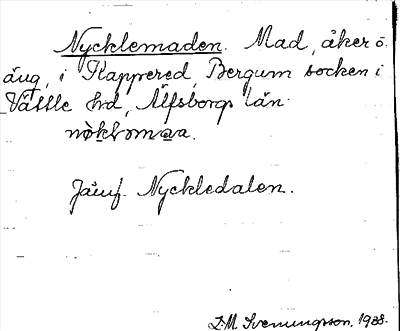 Nycklemaden. Mad, åker o.
äng, i Kappered, Bergum socken i
Vättle hd, Älfsborgs län.
Jämf. Nyckledalen.
I.M. Svenungsson, 1938.